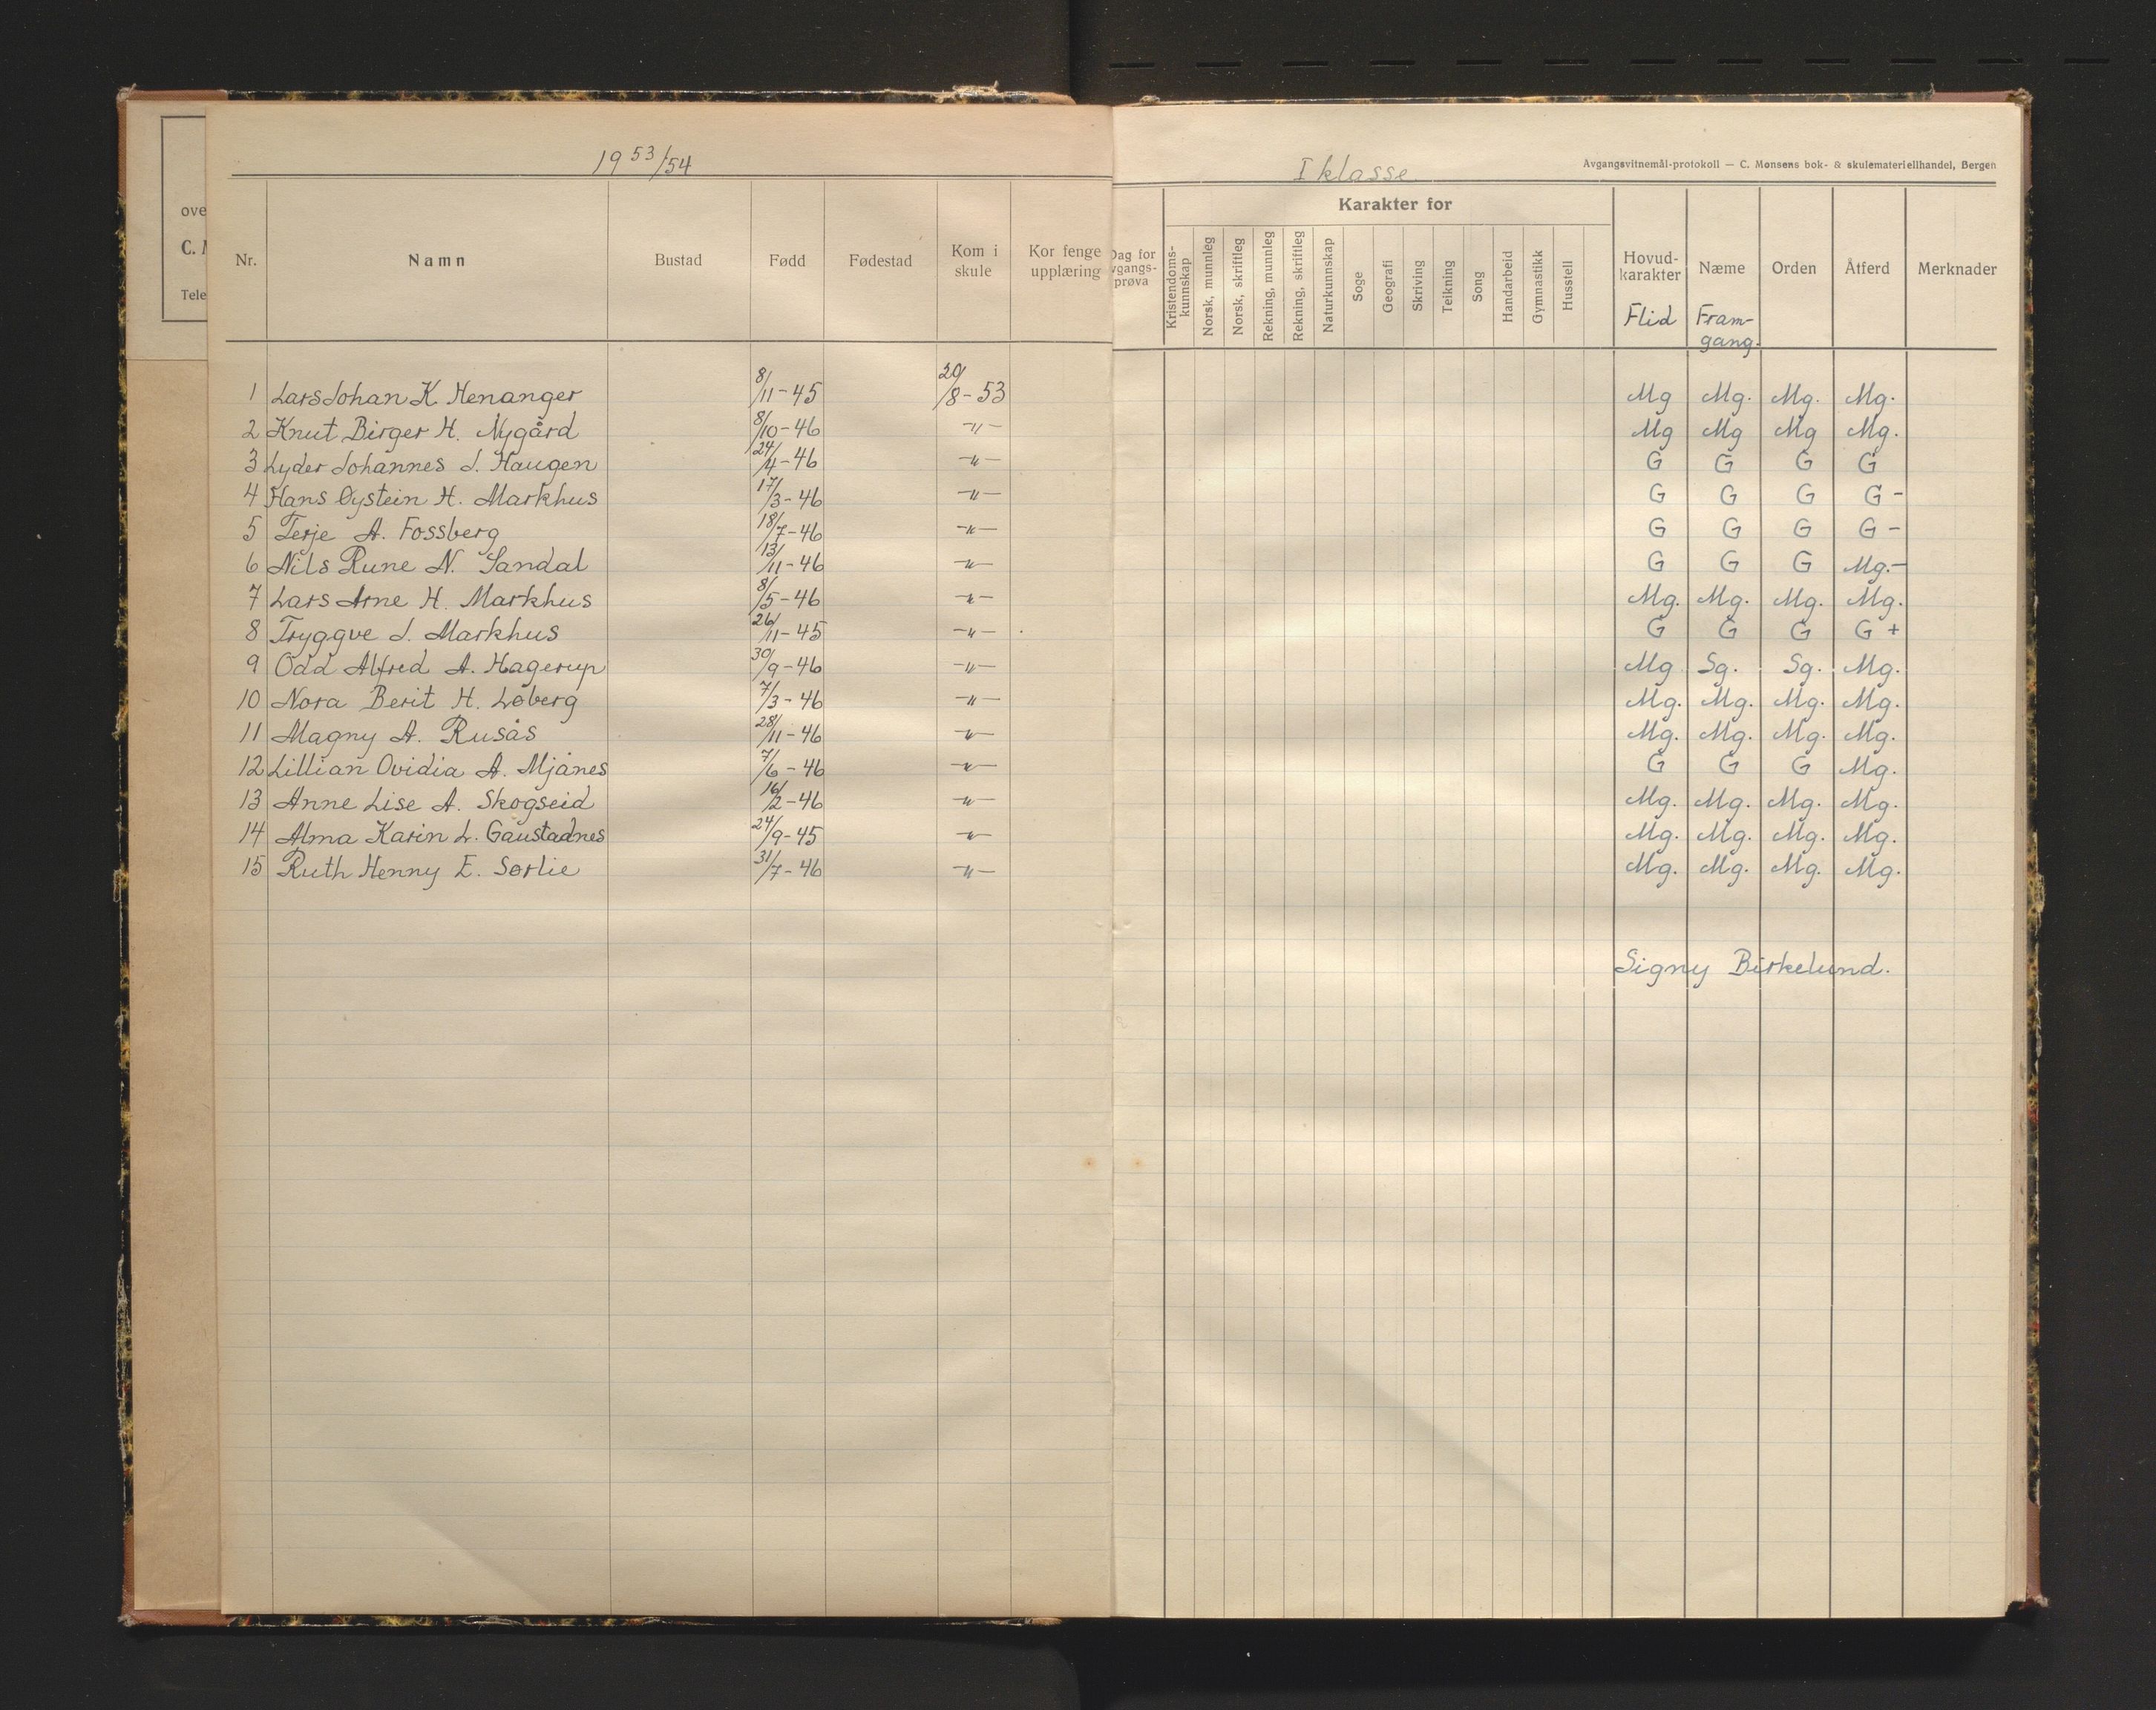 ove
C. M
Tele
1953/54
Nr. Namn Bustad Fødd Fødestad Kom i skule Kor fenge upplæring
1 Lars Johan K. Henanger 8/11-45 20/8-53
2 Knut Birger H. Nygård 8/10-46 -"-
3 Lyder Johannes J. Haugen 24/4-46 -"-
4 Hans Øystein H. Markhus 17/3-46 -"-
5 Terje A. Fossberg 18/7-46 -"-
6 Nils Rune N. Sandal 13/11-46 -"-
7 Lars Arne H. Markhus 8/5-46 -"-
8 Tryggve J. Markhus 26/11-45 -"-
9 Odd Alfred A. Hagerup 30/9-46 -"-
10 Nora Berit H. Løberg 7/3-46 -"-
11 Magny A. Rusås 28/11-46 -"-
12 Lillian Ovidia A. Mjånes 7/6-46 -"-
13 Anne Lise A. Skogseid 16/2-46 -"-
14 Alma Karin L. Gaustadnes 24/9-45 -"-
15 Ruth Henny E. Sørlie 31/7-46 -"-
I klasse
Avgangsvitnemål-protokoll — C. Monsens bok- & skulemateriellhandel, Bergen
Dag for vgangs-prøva
Karakter for
Kristendoms-kunnskap
Norsk, munnleg
Norsk, skriftleg
Rekning, munnleg
Rekning, skriftleg
Naturkunnskap
Soge
Geografi
Skriving
Teikning
Song
Handarbeid
Gymnastikk
Husstell
Hovud-karakter Næme Orden Åtferd Merknader
Flid Fram-gang.
Mg Mg. Mg. Mg.
Mg Mg Mg Mg.
G G G G
G G G G -
G G G G -
G G G Mg.-
Mg. Mg. Mg. Mg.
G G G G +
Mg. Sg. Sg. Mg.
Mg. Mg. Mg. Mg.
Mg. Mg. Mg. Mg.
G G G Mg.
Mg. Mg. Mg. Mg.
Mg. Mg. Mg. Mg.
Mg. Mg. Mg. Mg.
Signy Birkelund.